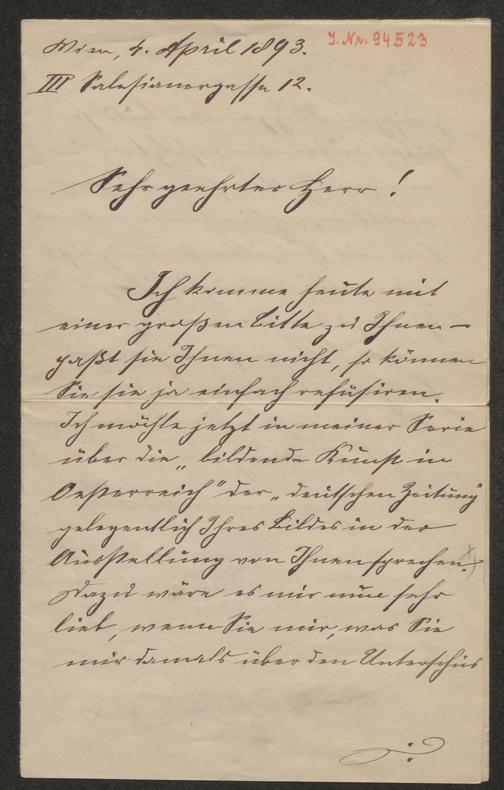 Wien, 4. April 1893.
J. Nr. 94523
III Salesianergasse 12.
Sehr geehrter Herr!
Ich komme heute mit
einer großen Bitte zu Ihnen –
paßt sie Ihnen nicht, so können
Sie sie ja einfach refüsiren.
Ich möchte jetzt in meiner Serie
über die „bildende Kunst in
Oesterreich" der „deutschen Zeitung"
gelegentlich Ihres Bildes in der
Ausstellung von Ihnen sprechen.
Dazu wäre es mir nun sehr
lieb, wenn Sie mir, was Sie
mir damals über den Unterschied